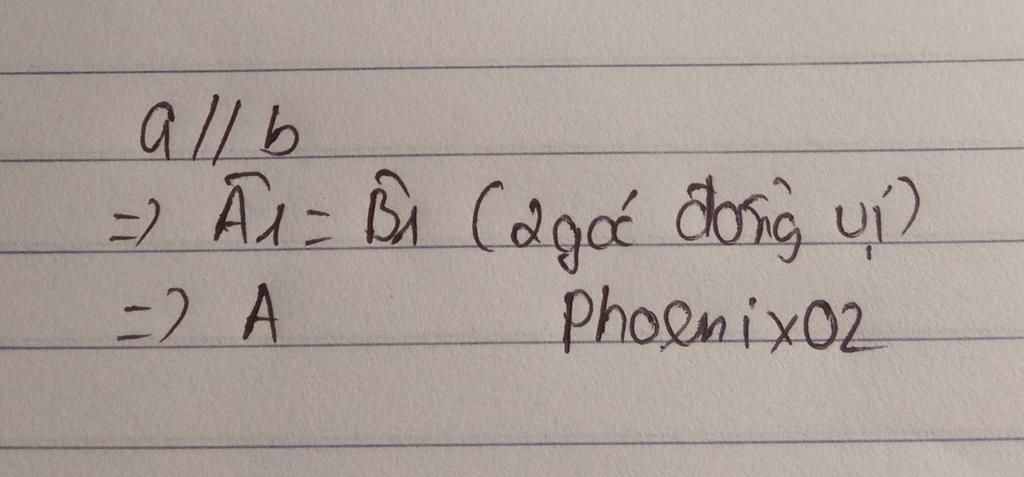 a // b
=> Â1 = B̂1 (2 góc đồng vị)
=> A PhoenixO2